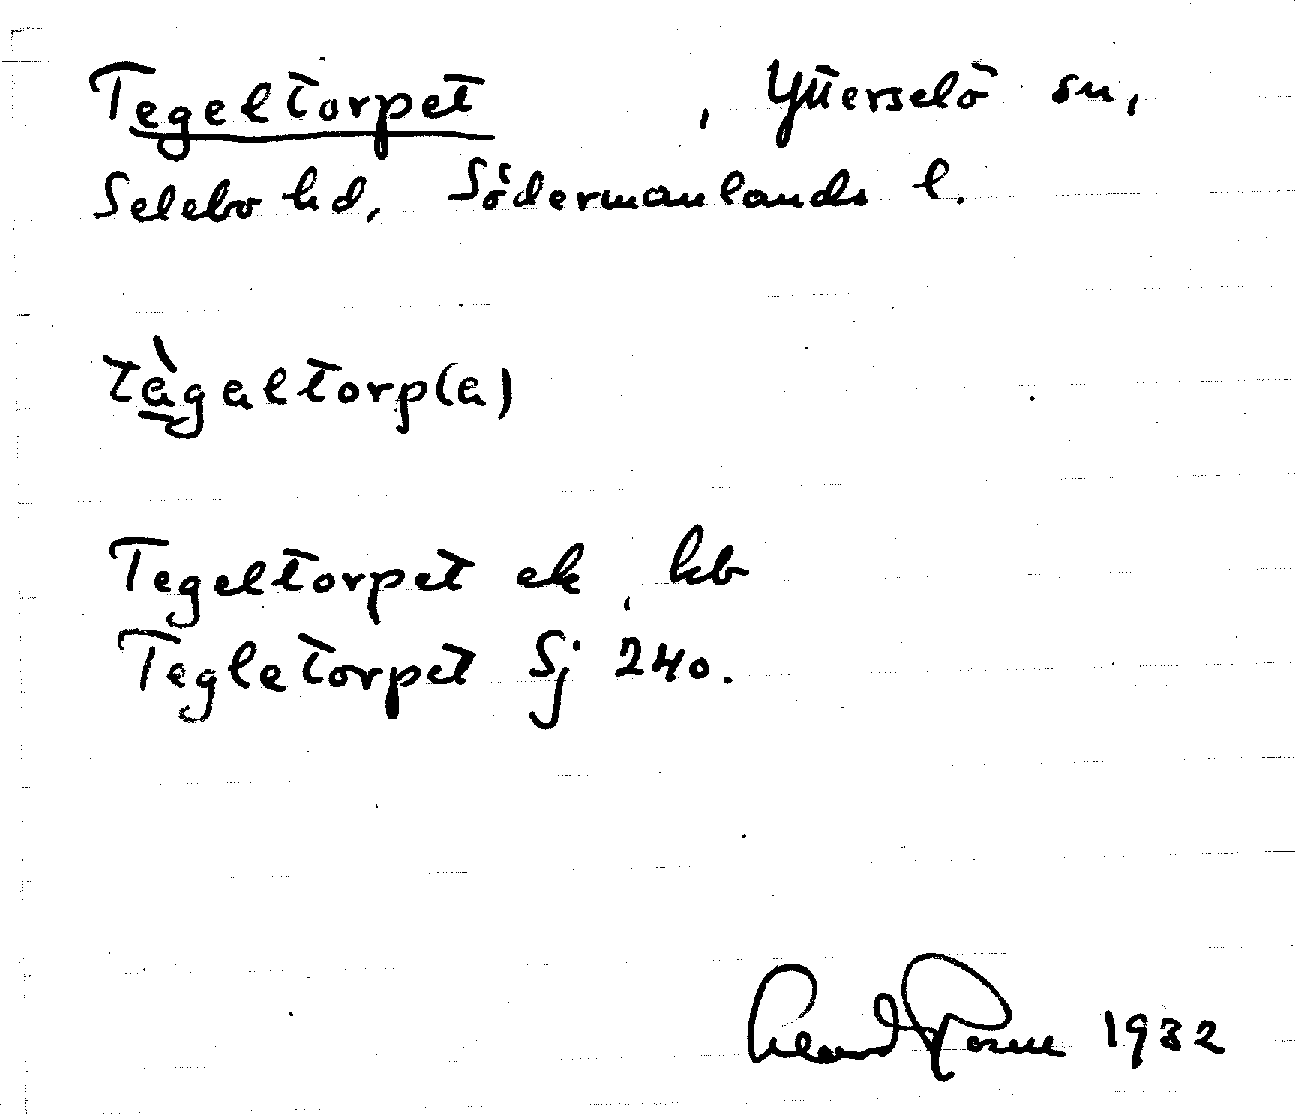 Tegeltorpet , Ytterselö sn,
Selebo hd, Södermanlands l.
tàgaltorp(a)
Tegeltorpet ek, kb
Tegletorpet Sj 240.
1932